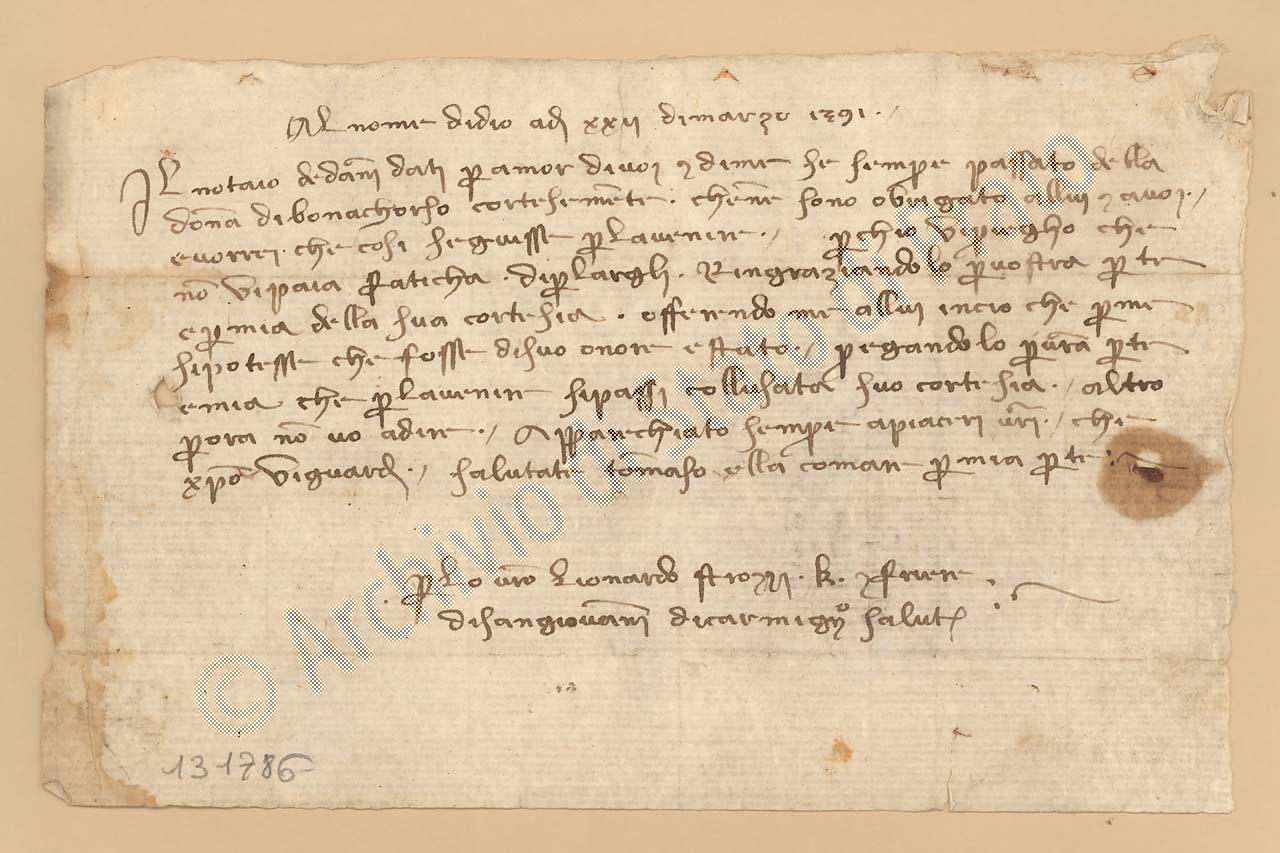 Al nome didio adi xxii dimarzo 1391.
Il notaio dedanni dati per amor divoi e dime se sempre passato della
donna di bonachorso cortesemente. chenne sono obrigato allui e avoi.
e vorrei. che chosi seguisse per lavenire. perchio vipriegho che
non vi paia faticha. diparlargli. Ringraziandolo per vostra parte
e per mia della sua cortesia. offerendo me allui in cio che per me
sipotesse che fosse disuo onore e stato. pregandolo per vostra parte
e mia che per lavenire sipassi collusata suo cortesia. altro
per ora non vo adire. Apparechiato sempre apiaceri vostri. che
xpo viguardi. salutate tomaso ella comare per mia parte.
per lo vostro Lionardo strozzi. k. e friere
disangiovanni dicarmignano salute
131786
© Archivio di Stato di Prato